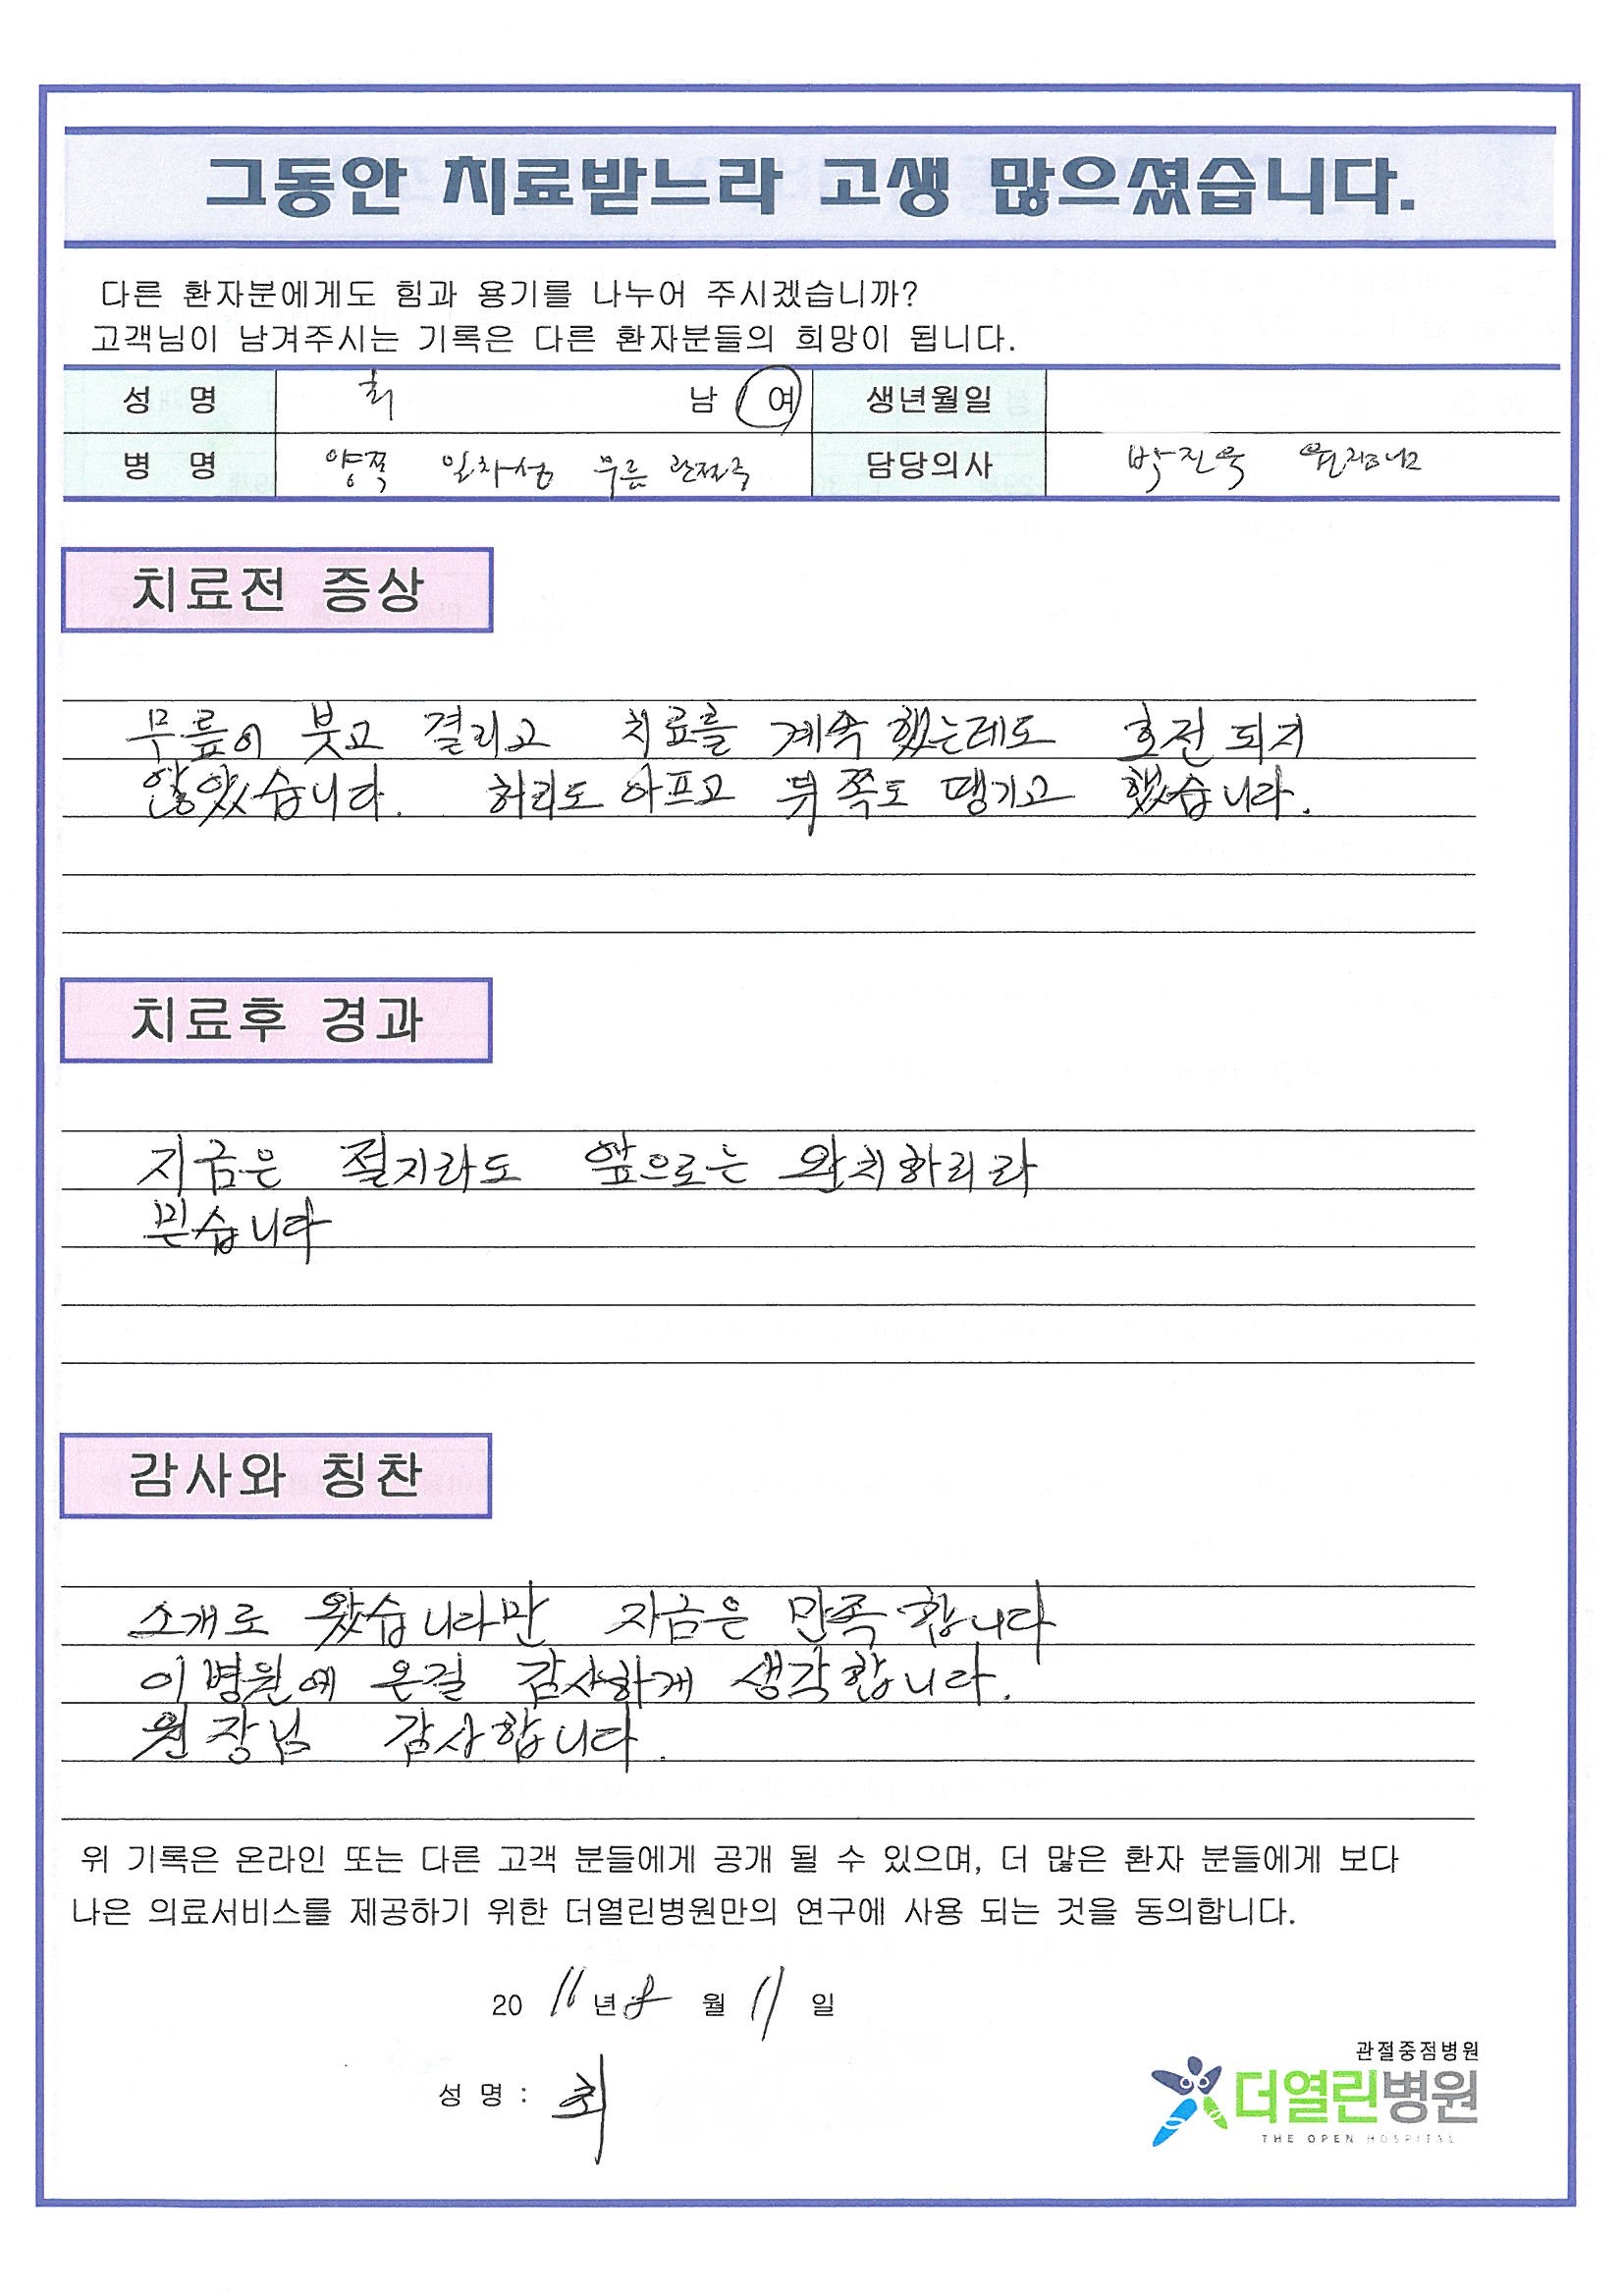 그동안 치료받느라 고생 많으셨습니다.
다른 환자분에게도 힘과 용기를 나누어 주시겠습니까?
고객님이 남겨주시는 기록은 다른 환자분들의 희망이 됩니다.
성 명 최 남 여 생년월일
병 명 양쪽 일차성 무릎 관절증 담당의사 박진욱 원장님
치료전 증상
무릎이 붓고 결리고 치료를 계속 했는데도 호전 되지
않았습니다. 허리도 아프고 뒤쪽도 땡기고 했습니다.
치료후 경과
지금은 절지라도 앞으로는 완치하리라
믿습니다
감사와 칭찬
소개로 왔습니다만 지금은 만족 합니다
이 병원에 온걸 감사하게 생각합니다.
원장님 감사합니다.
위 기록은 온라인 또는 다른 고객 분들에게 공개 될 수 있으며, 더 많은 환자 분들에게 보다
나은 의료서비스를 제공하기 위한 더열린병원만의 연구에 사용 되는 것을 동의합니다.
20 년 8 월 11 일
성 명 : 최
관절중점병원
더열린병원
THE OPEN HOSPITAL